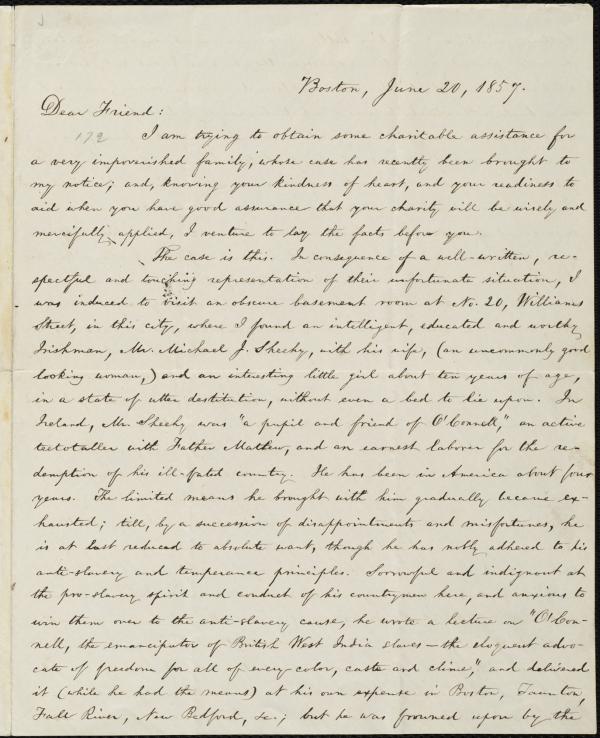 Boston, June 20, 1857.
Dear Friend:
172 I am trying to obtain some charitable assistance for
a very impoverished family, whose case has recently been brought to
my notice; and, knowing your kindness of heart, and your readiness to
aid when you have good assurance that your charity will be wisely and
mercifully applied, I venture to lay the facts before you.
The case is this. In consequence of a well-written, re-
spectful and touching representation of their unfortunate situation, I
was induced to visit an obscure basement room at No. 20, Williams
Street, in this city, where I found an intelligent, educated and worthy
Irishman, Mr. Michael J. Sheehy, with his wife, (an uncommonly good
looking woman,) and an interesting little girl about ten years of age,
in a state of utter destitution, without even a bed to lie upon. In
Ireland, Mr. Sheehy was "a pupil and friend of O'Connell," an active
teetotaller with Father Mathew, and an earnest laborer for the re-
demption of his ill-fated country. He has been in America about four
years. The limited means he brought with him gradually became ex-
hausted; till, by a succession of disappointments and misfortunes, he
is at last reduced to absolute want, though he has nobly adhered to his
anti-slavery and temperance principles. Sorrowful and indignant at
the pro-slavery spirit and conduct of his countrymen here, and anxious to
win them over to the anti-slavery cause, he wrote a lecture on "O'Con-
nell, the emancipator of British West India slaves—the eloquent advo-
cate of freedom for all of every color, caste and clime," and delivered
it (while he had the means) at his own expense in Boston, Taunton,
Fall River, New Bedford, &c.; but he was frowned upon by the